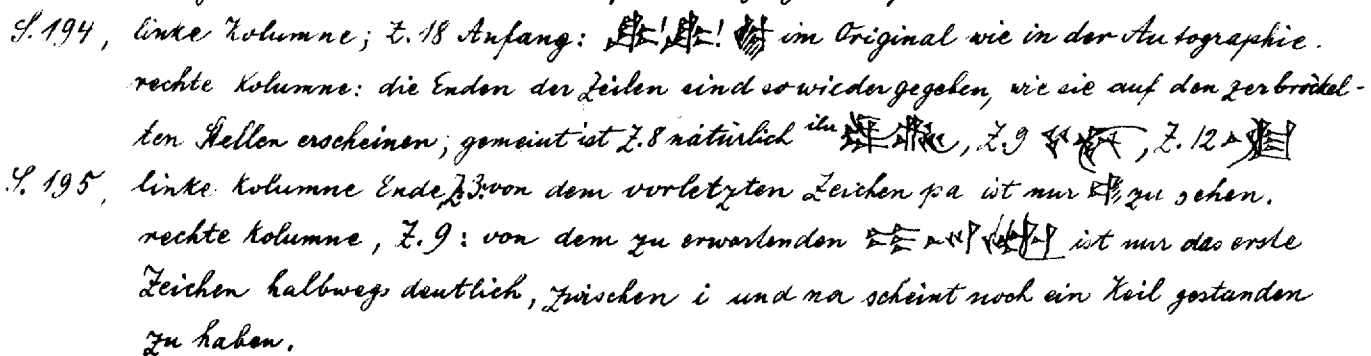 S. 194, linke Kolumne; Z. 18 Anfang: ! ! im Original wie in der Autographie.
rechte Kolumne: die Enden der Zeilen sind so wiedergegeben, wie sie auf den zerbröckel-
ten Stellen erscheinen; gemeint ist Z. 8 natürlich ilu , Z. 9 , Z. 12
S. 195, linke Kolumne Ende, Z. 3: von dem vorletzten Zeichen pa ist nur zu sehen.
rechte Kolumne, Z. 9: von dem zu erwartenden ist nur das erste
Zeichen halbwegs deutlich, zwischen i und na scheint noch ein Keil gestanden
zu haben.